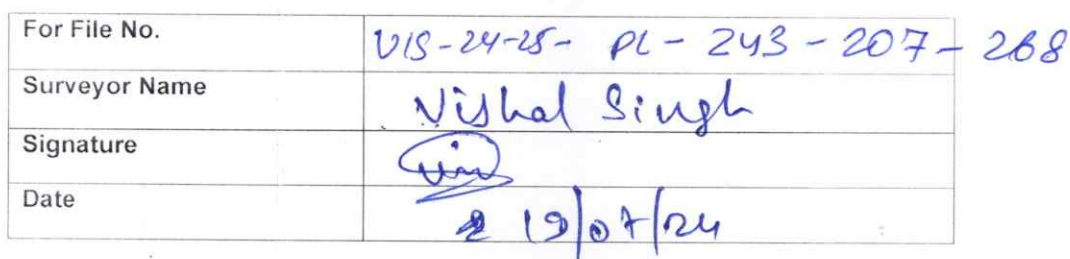 For File No. VIS-24-25- PL - 243 - 207 - 268
Surveyor Name Vishal Singh
Signature
Date 19/07/24